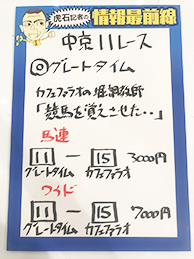 虎石記者の
情報最前線
中京11レース
◎グレートタイム
カフェファラオの堀調教師
「競馬を覚えさせた‥」
馬連
11 — 15 3000円
グレートタイム カフェファラオ
ワイド
11 — 15 7000円
グレートタイム カフェファラオ